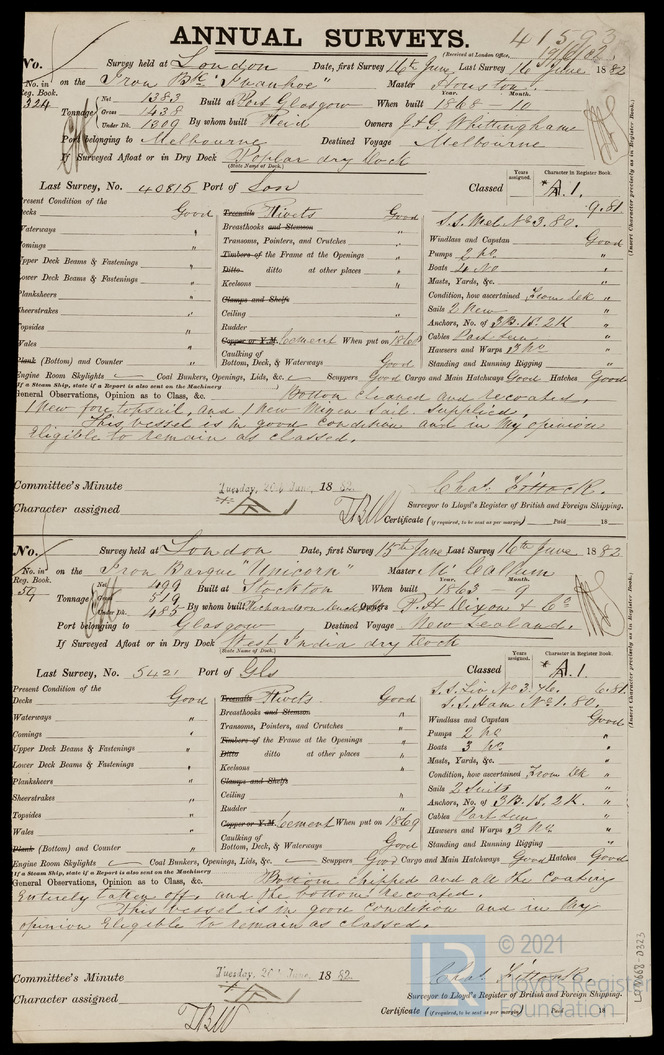 ANNUAL SURVEYS.
41593
(Received at London Office, 19/6/82.)
No. Survey held at London Date, first Survey 16th June Last Survey 16 June 1882
No. in Reg. Book. 324 on the Iron Bk "Ivanhoe" Master
Year. Month.
Tonnage Net 1383 Built at Port Glasgow When built 1868 - 10
Gross 1438
Under Dk. 1309 By whom built Reid Owners J & G Whittinghame
Port belonging to Melbourne Destined Voyage Melbourne
If Surveyed Afloat or in Dry Dock Poplar dry Dock
(State Name of Dock.)
Years assigned. Character in Register Book.
Last Survey, No. 40815 Port of Lon Classed A.1.
9.81
Present Condition of the
Decks Good
Waterways "
Comings "
Upper Deck Beams & Fastenings "
Lower Deck Beams & Fastenings "
Planksheers "
Sheerstrakes "
Topsides "
Wales "
Plank (Bottom) and Counter "
Treenails Rivets Good
Breasthooks and Stemson "
Transoms, Pointers, and Crutches "
Timbers of the Frame at the Openings "
Ditto ditto at other places "
Keelsons "
Clamps and Shelfs
Ceiling "
Rudder "
Copper or Y.M. Cement When put on 1868
Caulking of
Bottom, Deck, & Waterways Good
S.S. Mel. No 3. 80.
Windlass and Capstan Good
Pumps 2 No "
Boats 4 No "
Masts, Yards, &c. "
Condition, how ascertained From dk "
Sails 2 New "
Anchors, No. of 3B. 1S. 2K "
Cables Part seen "
Hawsers and Warps 3 No "
Standing and Running Rigging "
Engine Room Skylights Coal Bunkers, Openings, Lids, &c. Scuppers Good Cargo and Main Hatchways Good Hatches Good
If a Steam Ship, state if a Report is also sent on the Machinery
General Observations, Opinion as to Class, &c. Bottom cleaned and recoated,
1 New fore topsail, and 1 New Mizen Sail supplied.
This vessel is in good condition and in my opinion
Eligible to remain as classed.
Committee's Minute Tuesday, 20th June, 1882.
Chas. Fittock.
Character assigned
Surveyor to Lloyd's Register of British and Foreign Shipping.
TBW
Certificate (if required, to be sent as per margin) Paid 18
(Insert Character precisely as in Register Book.)
No. Survey held at London Date, first Survey 15th June Last Survey 16th June 1882
No. in Reg. Book. 59 on the Iron Barque "Unicorn" Master McCallum
Year. Month.
Tonnage Net 499 Built at Stockton When built 1863 - 9
Gross 519
Under Dk. 485 By whom built Richardson Duck Owners P. H Dixon & Co
Port belonging to Glasgow Destined Voyage New Zealand.
If Surveyed Afloat or in Dry Dock West India dry Dock
(State Name of Dock.)
Years assigned. Character in Register Book.
Last Survey, No. 5421 Port of Gls Classed A.1.
6.81
Present Condition of the
Decks Good
Waterways "
Comings "
Upper Deck Beams & Fastenings "
Lower Deck Beams & Fastenings "
Planksheers "
Sheerstrakes "
Topsides "
Wales "
Plank (Bottom) and Counter "
Treenails Rivets Good
Breasthooks and Stemson "
Transoms, Pointers, and Crutches "
Timbers of the Frame at the Openings "
Ditto ditto at other places "
Keelsons "
Clamps and Shelfs
Ceiling "
Rudder "
Copper or Y.M. Cement When put on 1869
Caulking of
Bottom, Deck, & Waterways Good
S.S. Liv. No 3. 76.
S.S. Ham No 1. 80.
Windlass and Capstan Good
Pumps 2 No "
Boats 3 No "
Masts, Yards, &c. "
Condition, how ascertained From dk "
Sails 2 Suits "
Anchors, No. of 3B. 1S. 2K. "
Cables Part seen "
Hawsers and Warps 3 No "
Standing and Running Rigging "
Engine Room Skylights Coal Bunkers, Openings, Lids, &c. Scuppers Good Cargo and Main Hatchways Good Hatches Good
If a Steam Ship, state if a Report is also sent on the Machinery
General Observations, Opinion as to Class, &c. Bottom chipped and all the coating
Entirely taken off, and the bottom recoated.
This vessel is in good condition and in my
opinion Eligible to remain as classed.
Committee's Minute Tuesday, 20th June, 1882.
Chas. Fittock.
Character assigned
Surveyor to Lloyd's Register of British and Foreign Shipping.
TBW
Certificate (if required, to be sent as per margin) Paid 18
(Insert Character precisely as in Register Book.)
© 2021
Lloyd's Register
Foundation